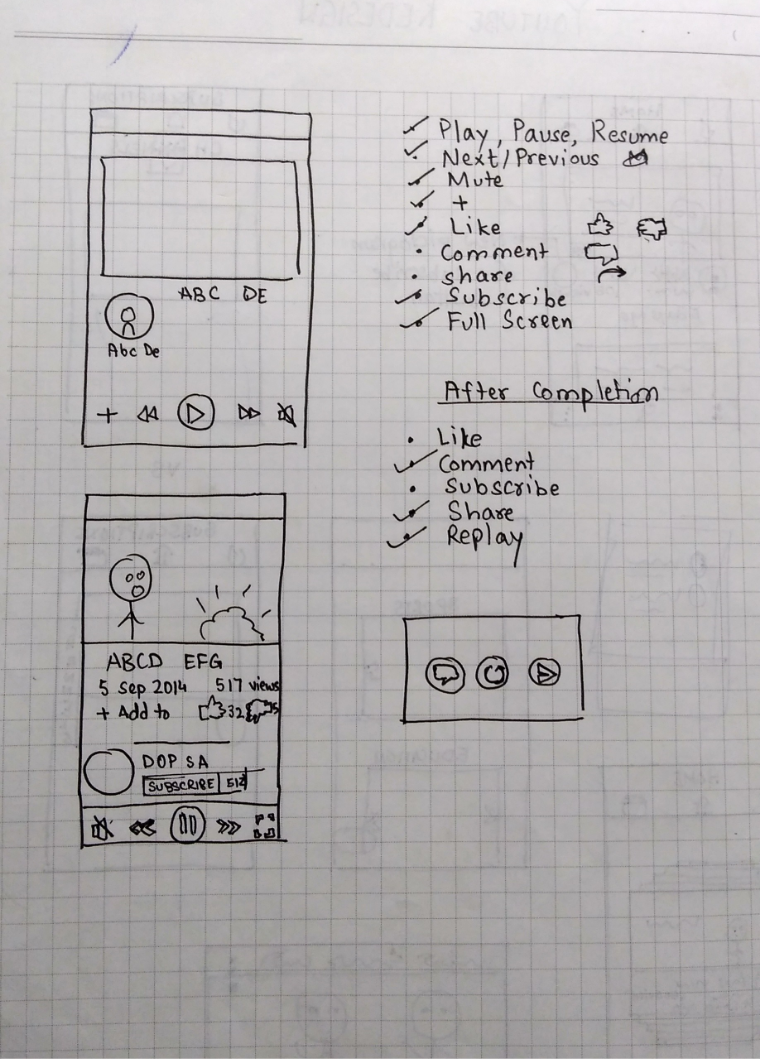 ABC DE
Abc De
+
ABCD EFG
5 Sep 2014 517 views
+ Add to 32
DOP SA
SUBSCRIBE
Play, Pause, Resume
Next/Previous
Mute
+
Like
Comment
share
Subscribe
Full Screen
After Completion
Like
Comment
Subscribe
Share
Replay